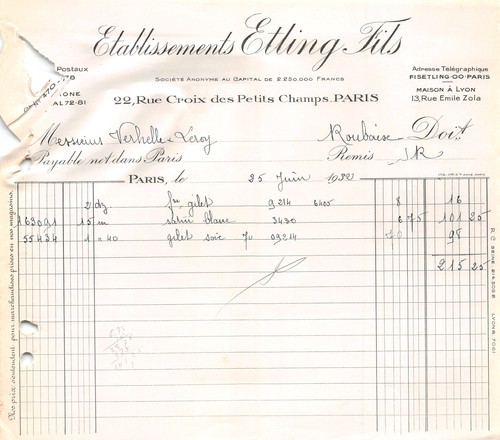 Etablissements Etling Fils
Postaux
Société Anonyme au Capital de 2.250.000 Francs
Adresse Télégraphique
FISETLING-OO-PARIS
MAISON À LYON
13, Rue Emile Zola
AL 72-81
22, Rue Croix des Petits Champs. PARIS
Messieurs Verhelle-Leroy Roubaix Doit
Payable net dans Paris Remis JR
PARIS, le 25 Juin 1932
2 dz. gilet 9214 6405 8 16
163091 15 m satin blanc 3430 6 75 101 25
55434 1 m 40 gilet soie 09214 70 98
215 25
Nos prix s'entendent pour marchandises prises en nos magasins.
R.C. SEINE 214.509 B
LYON B. 7061